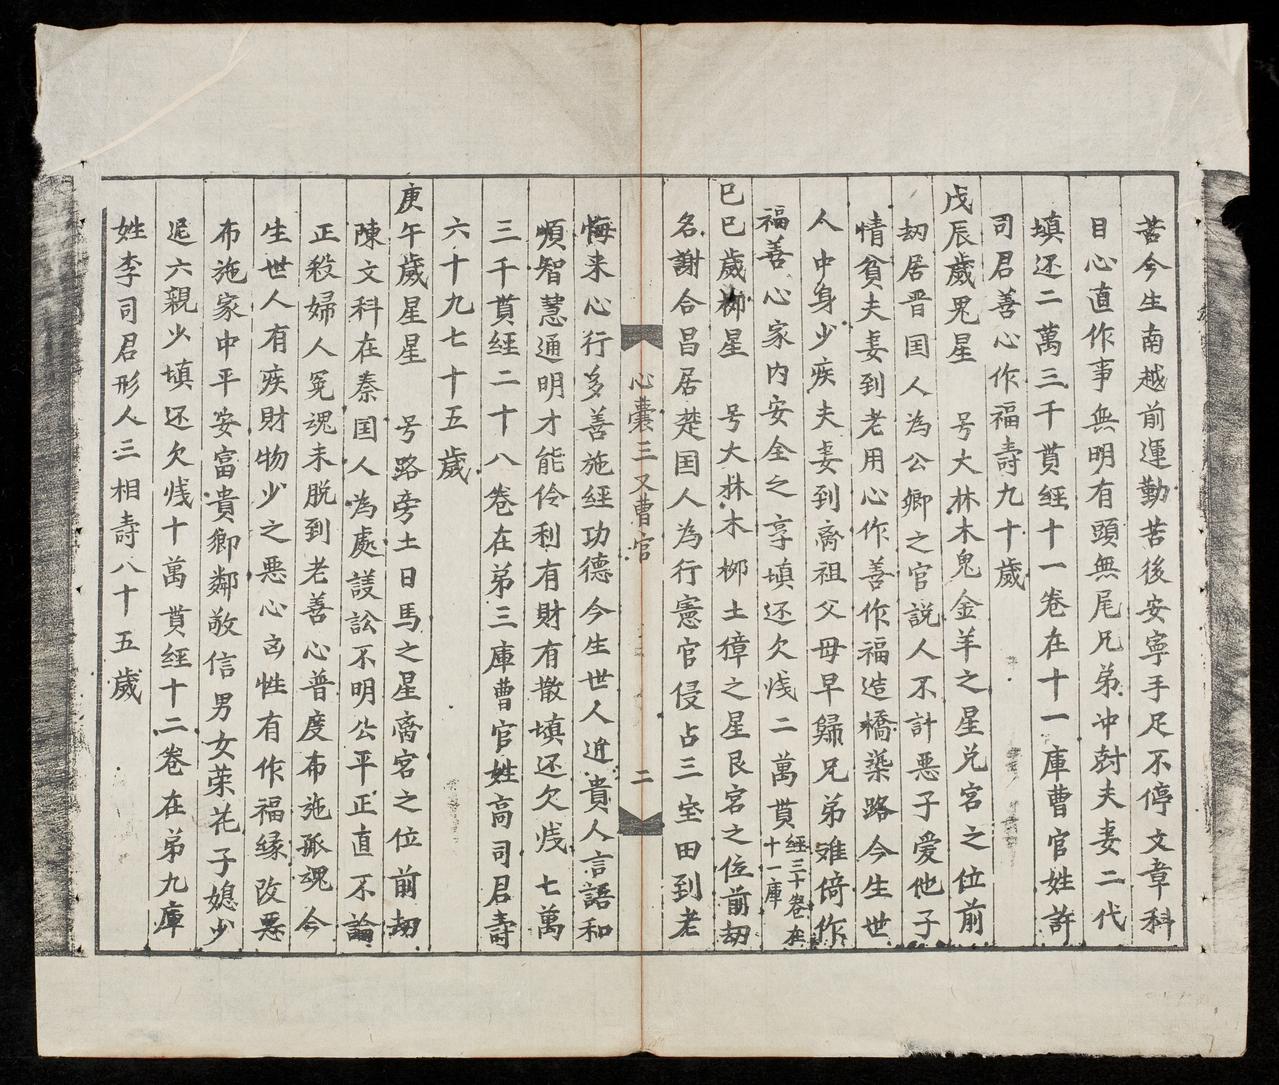 苦今生南越前運勤苦後安寧手足不停文章科
目心直作事無明有頭無尾兄弟冲尅夫妻二代
填还二萬三千貫經十一卷在十一庫曹官姓許
司君善心作福壽九十歲
戊辰歲鬼星　号大林木鬼金羊之星兑宮之位前
刼居晋囯人為公卿之官説人不計恶子爱他子
情貧夫妻到老用心作善作福造橋梁路今生世
人中身少疾夫妻到离祖父母早歸兄弟难倚作
福善心家内安全之享填还欠𬦤二萬貫經三十卷在十一庫
巳巳歲柳星　号大林木柳土獐之星艮宮之位前刼
名謝合昌居楚囯人為行憲官侵占三宝田到老
心囊三又曹官　二
悔来心行多善施經功德今生世人近貴人言語和
順智慧通明才能伶利有財有散填还欠𬦤七萬
三千貫經二十八卷在弟三庫曹官姓高司君壽
六十九七十五歲
庚午歲星星　号路旁土日馬之星离宮之位前刼
陳文科在秦囯人為處諠訟不明公平正直不論
正殺婦人冤魂未脱到老善心普度布施孤魂今
生世人有疾財物少之悪心凶性有作福縁改悪
布施家中平安富貴鄉鄰敬信男女荣花子媳少
逃六親少填还欠𬦤十萬貫經十二卷在弟九庫
姓李司君形人三相壽八十五歲